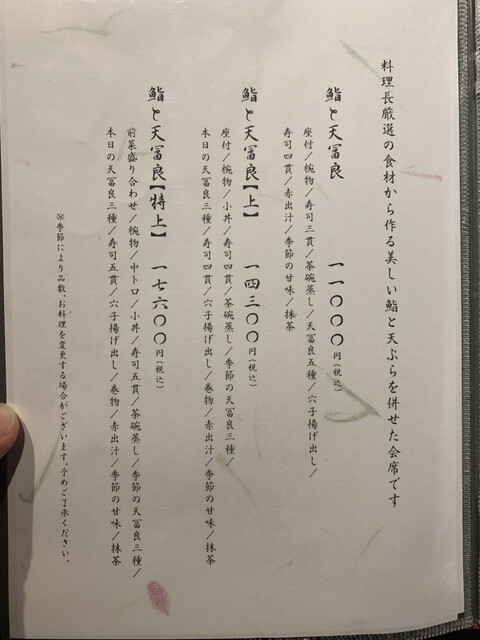 料理長厳選の食材から作る美しい鮨と天ぷらを併せた会席です
鮨と天冨良 一一〇〇〇円(税込)
座付/椀物/寿司三貫/茶碗蒸し/天冨良五種/穴子揚げ出し/
寿司四貫/赤出汁/季節の甘味/抹茶
鮨と天冨良【上】 一四三〇〇円(税込)
座付/椀物/小丼/寿司四貫/茶碗蒸し/季節の天冨良三種/
本日の天冨良三種/寿司四貫/穴子揚げ出し/巻物/赤出汁/季節の甘味/抹茶
鮨と天冨良【特上】 一七六〇〇円(税込)
前菜盛り合わせ/椀物/中トロ/小丼/寿司五貫/茶碗蒸し/季節の天冨良三種/
本日の天冨良三種/寿司五貫/穴子揚げ出し/巻物/赤出汁/季節の甘味/抹茶
※季節により品数、お料理を変更する場合がございます。予めご了承ください。